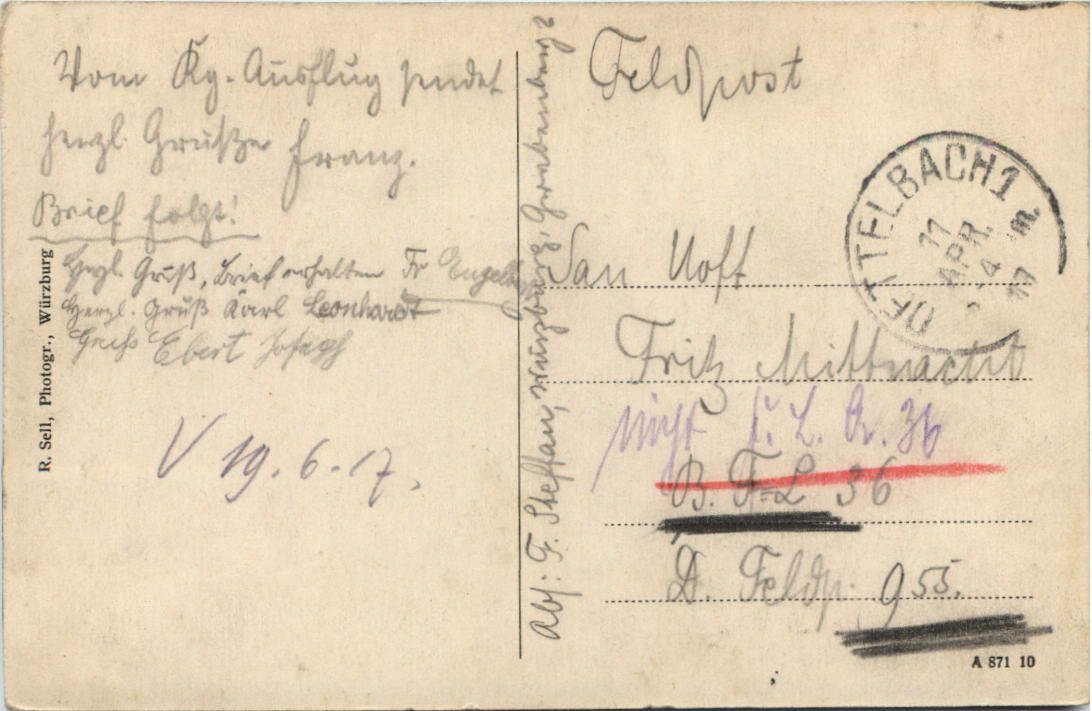 Vom Kg.-Ausflug sendet
herzl. Grüße Franz.
Brief folgt!
Herzl. Gruß, Brief erhalten Fr
Herzl. Gruß Karl Leonhardt
Gruß Ebert Joseph
V 19. 6. 17.
R. Sell, Photogr., Würzburg
Abs: F. Stephan, Würzburg,
Feldpost
DETTELBACH 1
11
APR.
17
San Uoff
Fritz Mittnacht
nicht F. L. A. 36
B. F=L 36
D. Feldp. 955.
A 871 10